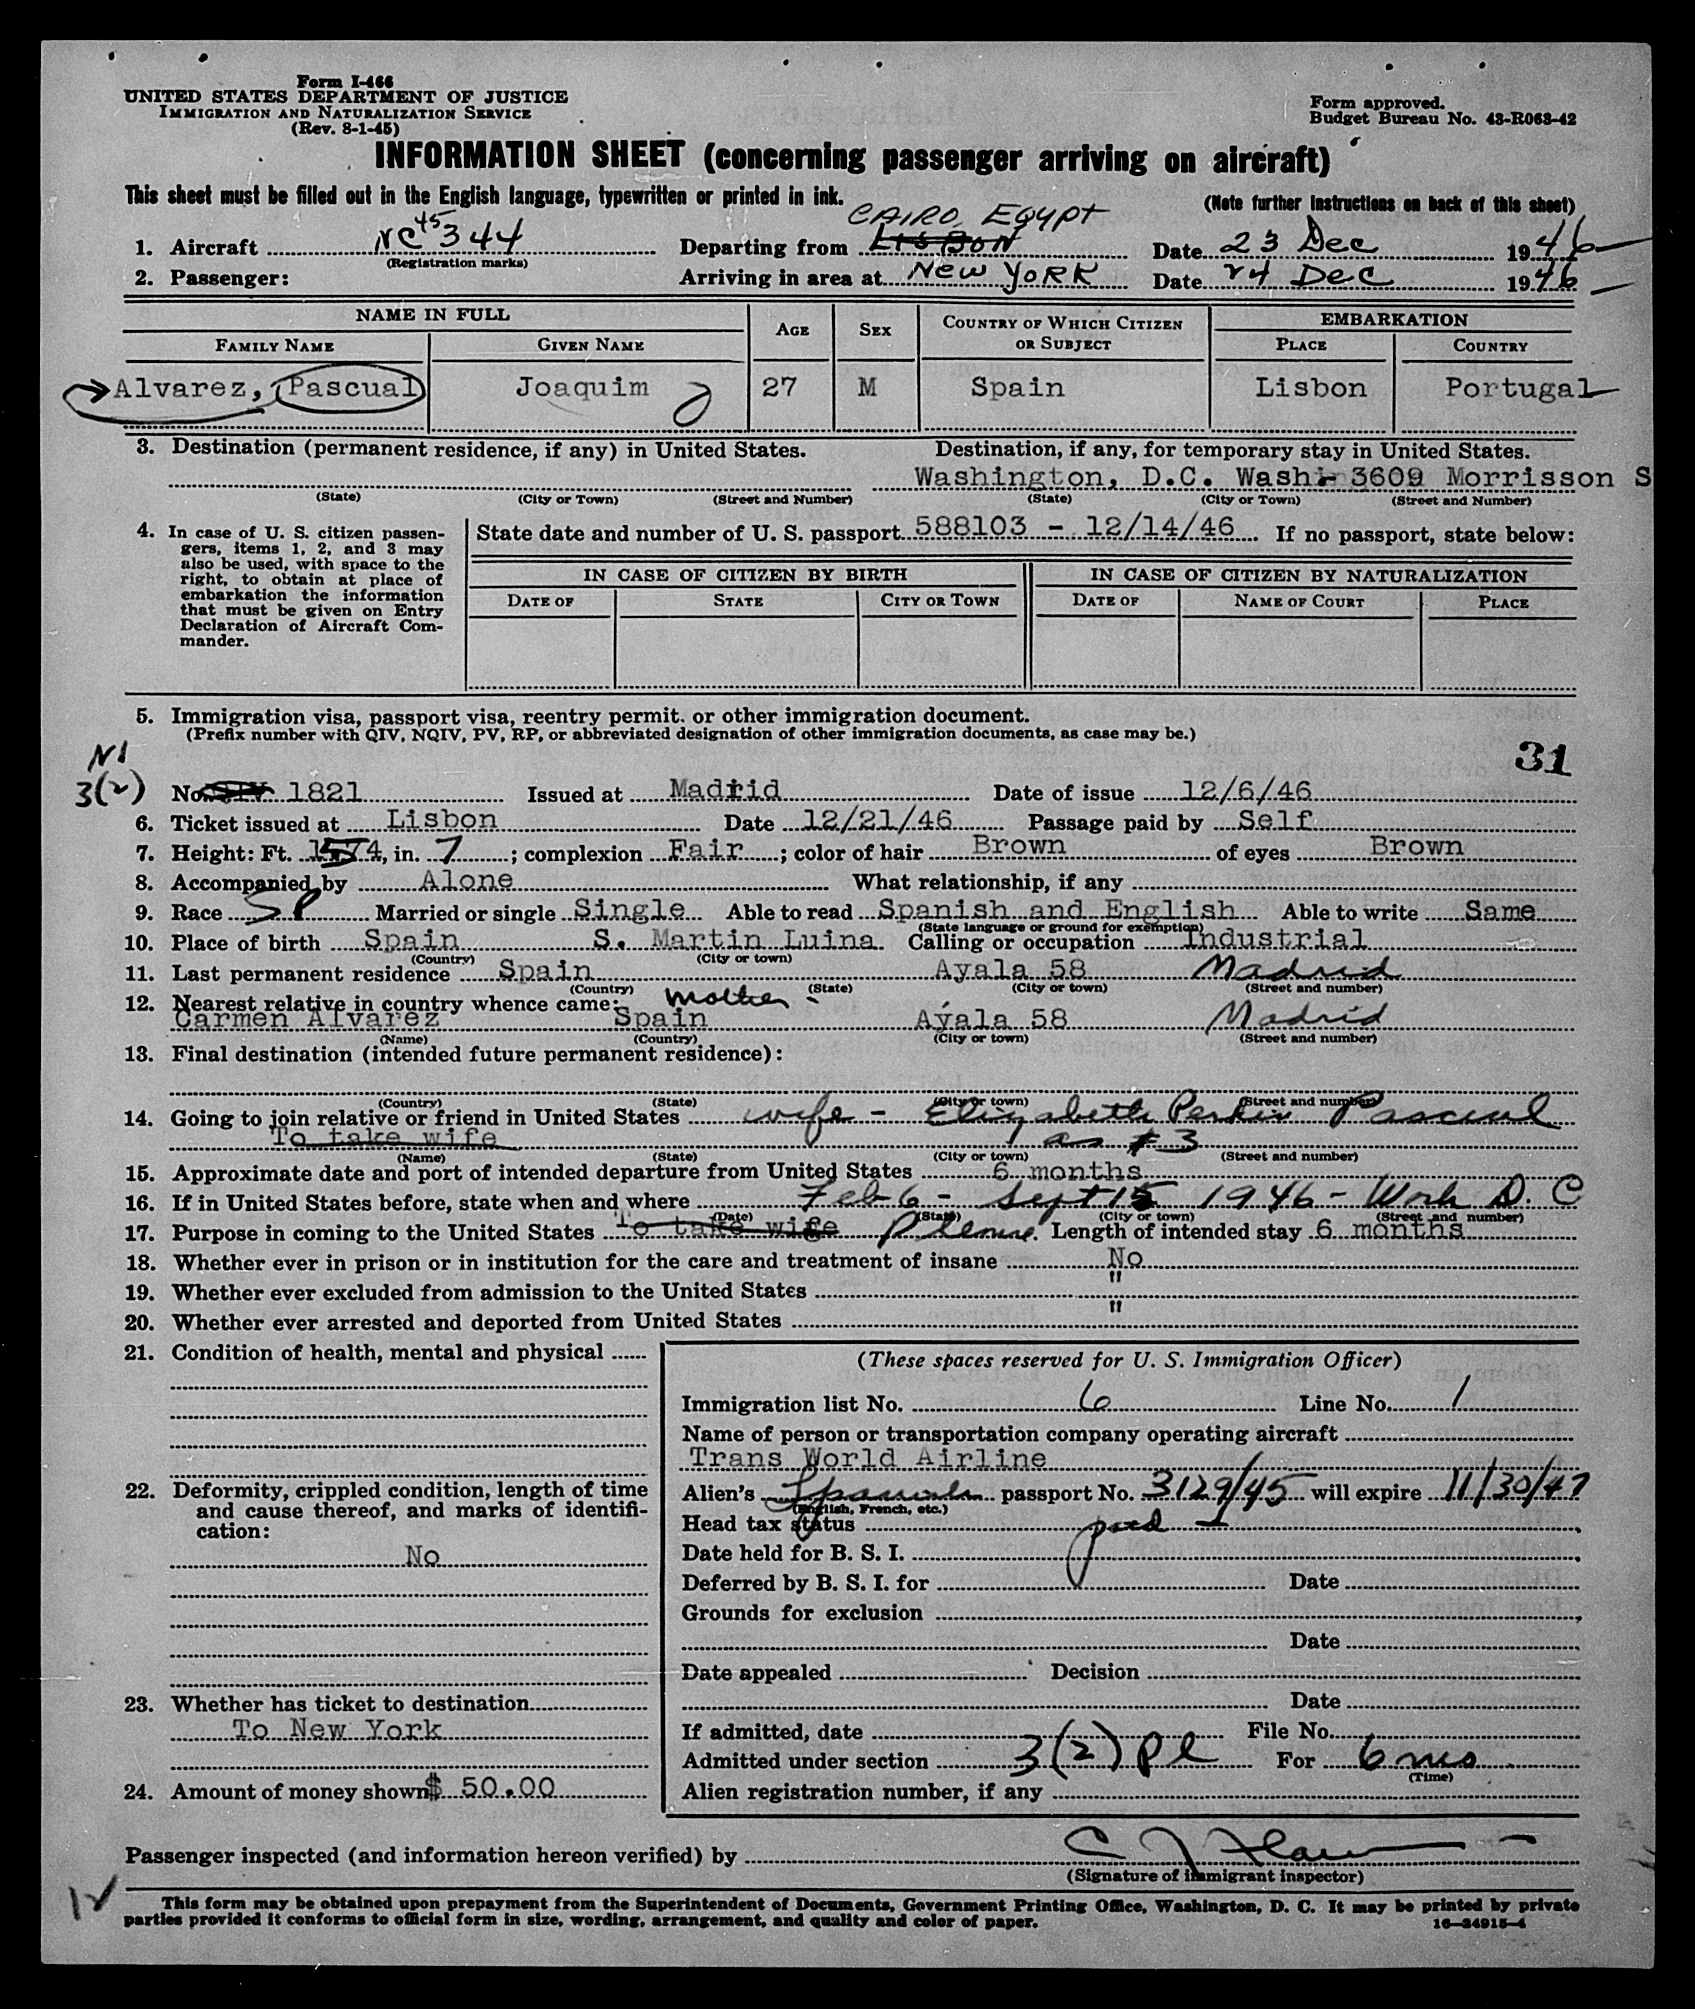 Form I-466
UNITED STATES DEPARTMENT OF JUSTICE
IMMIGRATION AND NATURALIZATION SERVICE
(Rev. 8-1-45)
Form approved.
Budget Bureau No. 43-R063-42
INFORMATION SHEET (concerning passenger arriving on aircraft)
This sheet must be filled out in the English language, typewritten or printed in ink.
(Note further instructions on back of this sheet)
CAIRO, EGYPT
1. Aircraft NC 45344 Departing from LISBON Date 23 Dec 1946
(Registration marks)
2. Passenger: Arriving in area at New YORK Date 24 Dec 1946
NAME IN FULL AGE SEX COUNTRY OF WHICH CITIZEN OR SUBJECT EMBARKATION
FAMILY NAME GIVEN NAME PLACE COUNTRY
Alvarez, Pascual Joaquim 27 M Spain Lisbon Portugal
3. Destination (permanent residence, if any) in United States. Destination, if any, for temporary stay in United States.
Washington, D.C. Wash. 3609 Morrisson S
(State) (City or Town) (Street and Number) (State) (City or Town) (Street and Number)
4. In case of U. S. citizen passengers, items 1, 2, and 3 may also be used, with space to the right, to obtain at place of embarkation the information that must be given on Entry Declaration of Aircraft Commander.
State date and number of U. S. passport 588103 - 12/14/46 If no passport, state below:
IN CASE OF CITIZEN BY BIRTH IN CASE OF CITIZEN BY NATURALIZATION
DATE OF STATE CITY OR TOWN DATE OF NAME OF COURT PLACE
5. Immigration visa, passport visa, reentry permit, or other immigration document.
(Prefix number with QIV, NQIV, PV, RP, or abbreviated designation of other immigration documents, as case may be.)
31
3(2) No. 1821 Issued at Madrid Date of issue 12/6/46
6. Ticket issued at Lisbon Date 12/21/46 Passage paid by Self
7. Height: Ft. 5, in. 7; complexion Fair; color of hair Brown of eyes Brown
8. Accompanied by Alone What relationship, if any
9. Race SP Married or single Single Able to read Spanish and English Able to write Same
(State language or ground for exemption)
10. Place of birth Spain S. Martin Luina Calling or occupation Industrial
(Country) (City or town)
11. Last permanent residence Spain Ayala 58 Madrid
(Country) (State) (City or town) (Street and number)
12. Nearest relative in country whence came: mother -
Carmen Alvarez Spain Ayala 58 Madrid
(Name) (Country) (City or town) (Street and number)
13. Final destination (intended future permanent residence):
(Country) (State) (City or town) (Street and number)
14. Going to join relative or friend in United States wife - Elizabeth Perkin Pascual
To take wife as # 3
(Name) (State) (City or town) (Street and number)
15. Approximate date and port of intended departure from United States 6 months
16. If in United States before, state when and where Feb 6 - Sept 15 1946 - Wash D. C
(Date) (State) (City or town) (Street and number)
17. Purpose in coming to the United States To take wife Pleasure. Length of intended stay 6 months
18. Whether ever in prison or in institution for the care and treatment of insane No
19. Whether ever excluded from admission to the United States "
20. Whether ever arrested and deported from United States "
21. Condition of health, mental and physical
22. Deformity, crippled condition, length of time and cause thereof, and marks of identification:
No
23. Whether has ticket to destination
To New York
24. Amount of money shown $ 50.00
(These spaces reserved for U. S. Immigration Officer)
Immigration list No. 6 Line No. 1
Name of person or transportation company operating aircraft
Trans World Airline
Alien's Spanish passport No. 3129/45 will expire 11/30/47
(English, French, etc.)
Head tax status paid
Date held for B. S. I.
Deferred by B. S. I. for Date
Grounds for exclusion
Date
Date appealed Decision
Date
If admitted, date File No.
Admitted under section 3(2) Pl For 6 mos
(Time)
Alien registration number, if any
Passenger inspected (and information hereon verified) by
(Signature of immigrant inspector)
This form may be obtained upon prepayment from the Superintendent of Documents, Government Printing Office, Washington, D. C. It may be printed by private
parties provided it conforms to official form in size, wording, arrangement, and quality and color of paper.
16-24915-4